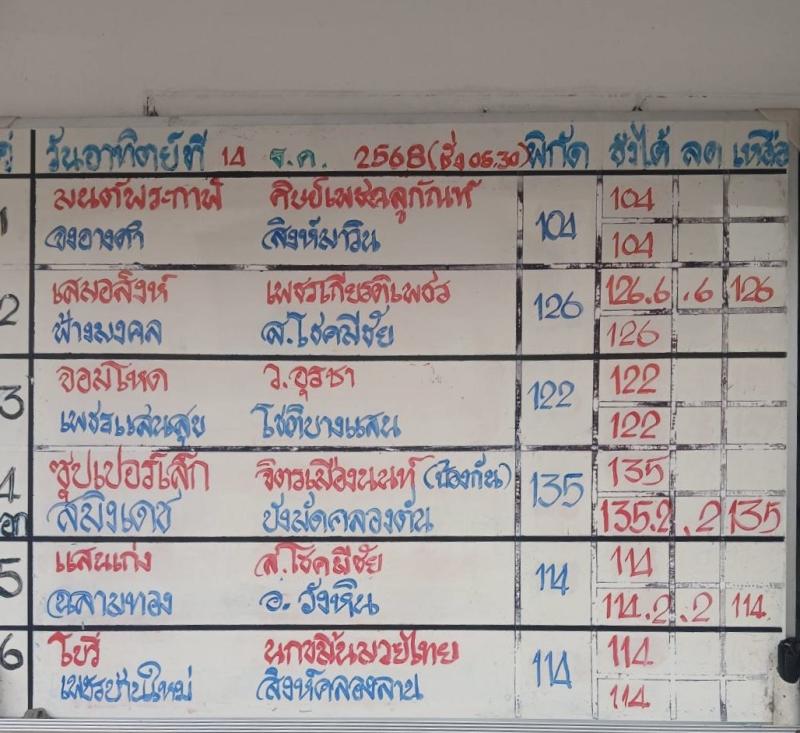 คู่ วันอาทิตย์ที่ 14 ธ.ค. 2568 (ชั่ง 05.30) พิกัด ชั่งได้ ลด เหลือ
1 มนต์พระกาฬ ศิษย์เพชฌลูกัณฑ์ 104 104
จงอางดำ สิงห์มาวิน 104
2 เสมอสิงห์ เพชรเกียรติเพชร 126 126.6 .6 126
ฟ้ามงคล ส.โชคมีชัย 126
3 จอมโหด ว.อุรชา 122 122
เพชรแสนสุข โชติบางแสน 122
4 ซุปเปอร์เล็ก จิตรเมืองนนท์ (ป้องกัน) 135 135
เอก สมิงเดช บังมัดคลองตัน 135.2 .2 135
5 แสนเก่ง ส.โชคมีชัย 114 114
ฉลามทอง อ.วังหิน 114.2 .2 114
6 โยรี นกขมิ้นมวยไทย 114 114
เพชรบ้านใหม่ สิงห์คลองลาน 114